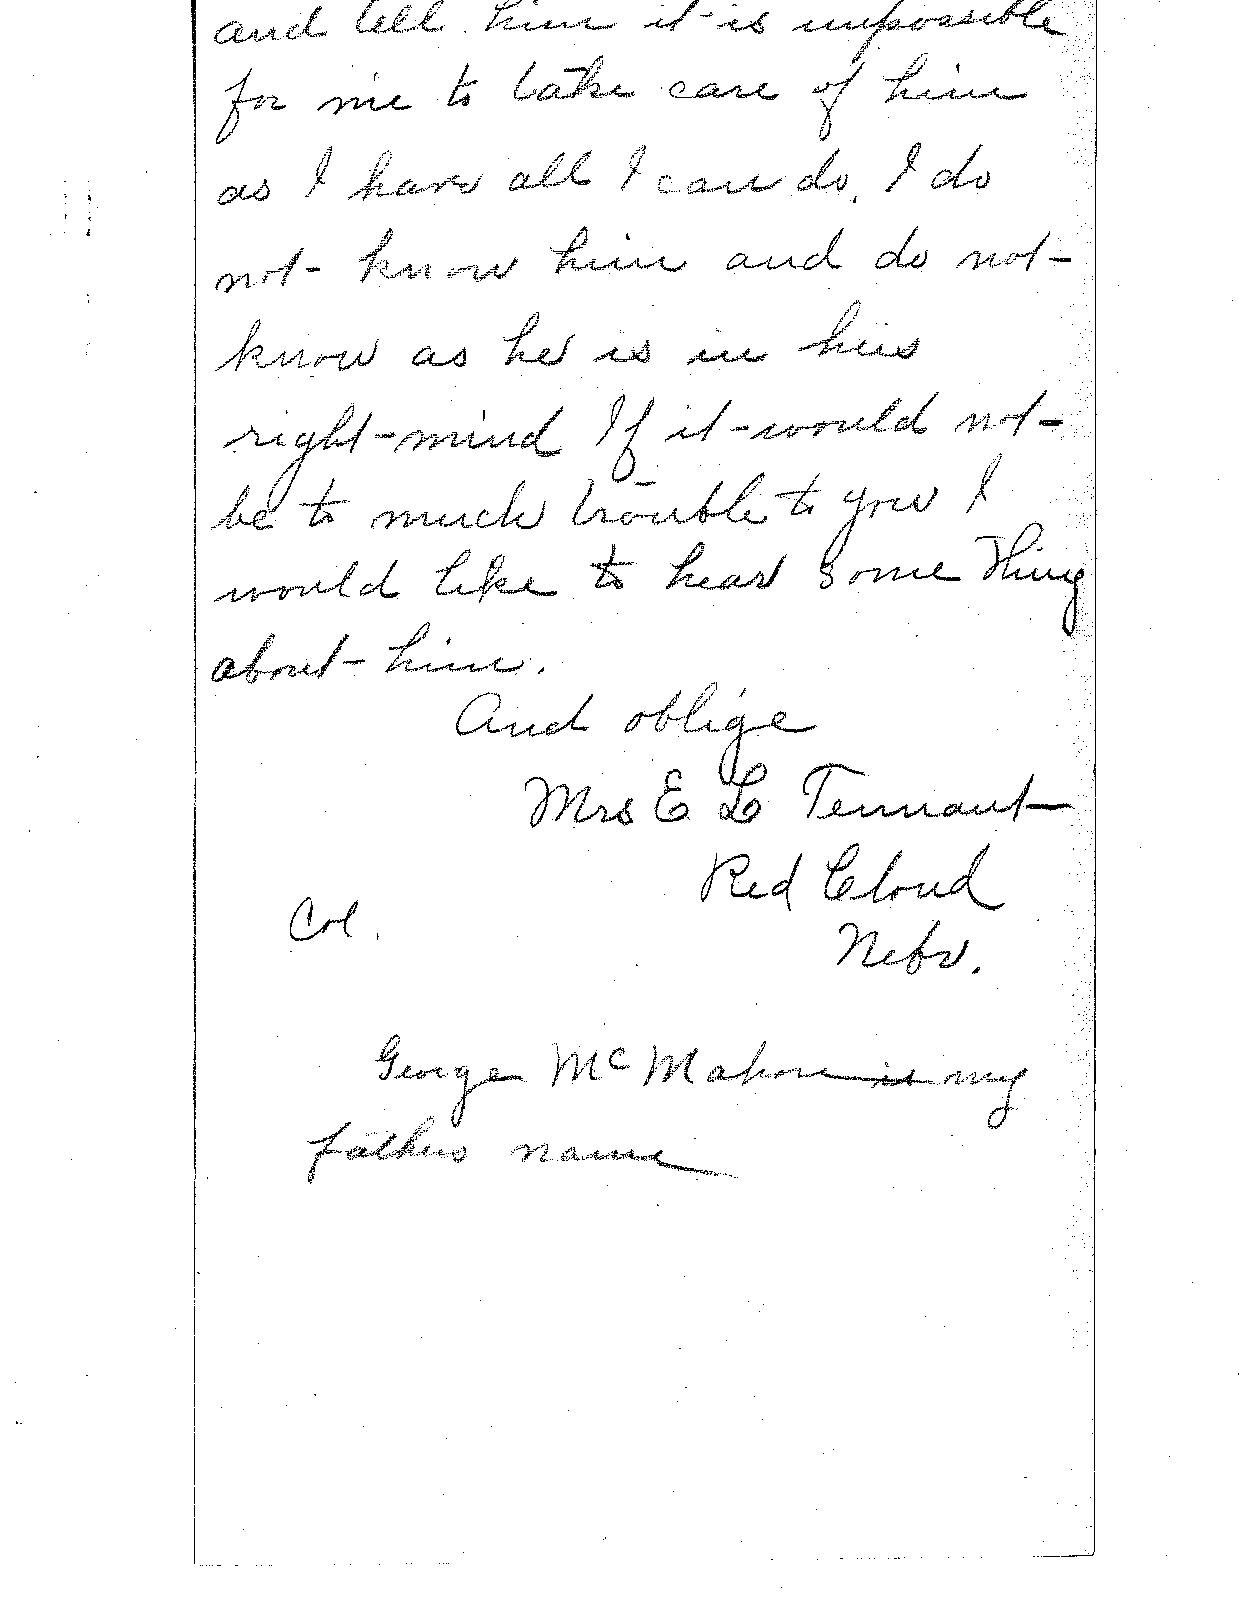 and tell him it is impossible
for me to take care of him
as I have all I can do. I do
not know him and do not
know as he is in his
right mind If it would not
be to much trouble to you I
would like to hear some thing
about him.
And oblige
Mrs E L Tennant
Red Cloud
Col.
Nebr.
George Mc Mahon is my
fathers name